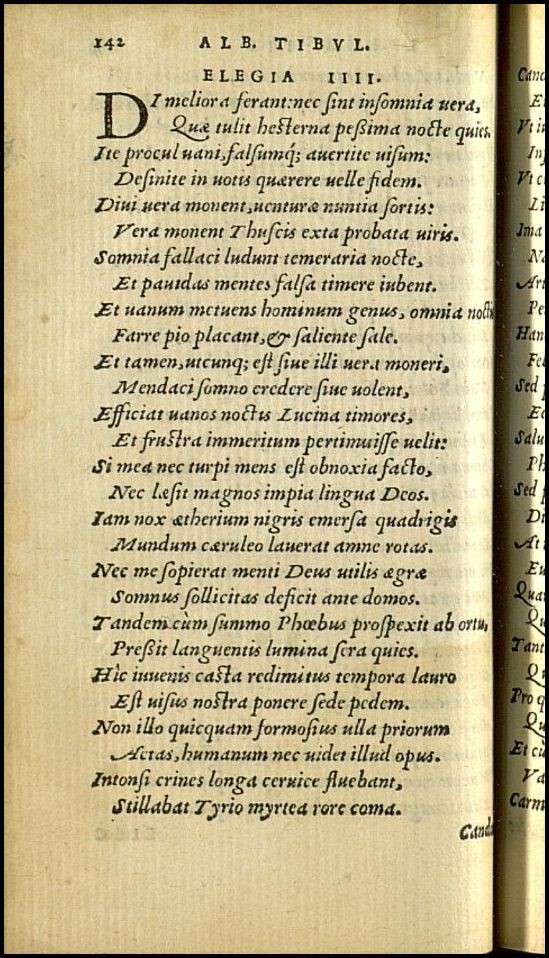 142 ALB. TIBVL.
ELEGIA IIII.
DI meliora ferant: nec ſint inſomnia uera,
Quæ tulit heſterna peßima nocte quies.
Ite procul uani, falſumq́; auertite uiſum:
Deſinite in uotis quærere uelle fidem.
Diui uera monent, uenturæ nuntia ſortis:
Vera monent Thuſcis exta probata uiris.
Somnia fallaci ludunt temeraria nocte,
Et pauidas mentes falſa timere iubent.
Et uanum metuens hominum genus, omnia noctis
Farre pio placant, & ſaliente ſale.
Et tamen, utcunq; eſt ſiue illi uera moneri,
Mendaci ſomno credere ſiue uolent,
Efficiat uanos noctis Lucina timores,
Et fruſtra immeritum pertimuiſſe uelit:
Si mea nec turpi mens eſt obnoxia facto,
Nec læſit magnos impia lingua Deos.
Iam nox ætherium nigris emerſa quadrigis
Mundum cæruleo lauerat amne rotas.
Nec me ſopierat menti Deus utilis ægræ
Somnus ſollicitas deficit ante domos.
Tandem cùm ſummo Phœbus proſpexit ab ortu,
Preßit languentis lumina ſera quies.
Hîc iuuenis caſta redimitus tempora lauro
Eſt uiſus noſtra ponere ſede pedem.
Non illo quicquam formoſius ulla priorum
Aetas, humanum nec uidet illud opus.
Intonſi crines longa ceruice fluebant,
Stillabat Tyrio myrtea rore coma.
Cando